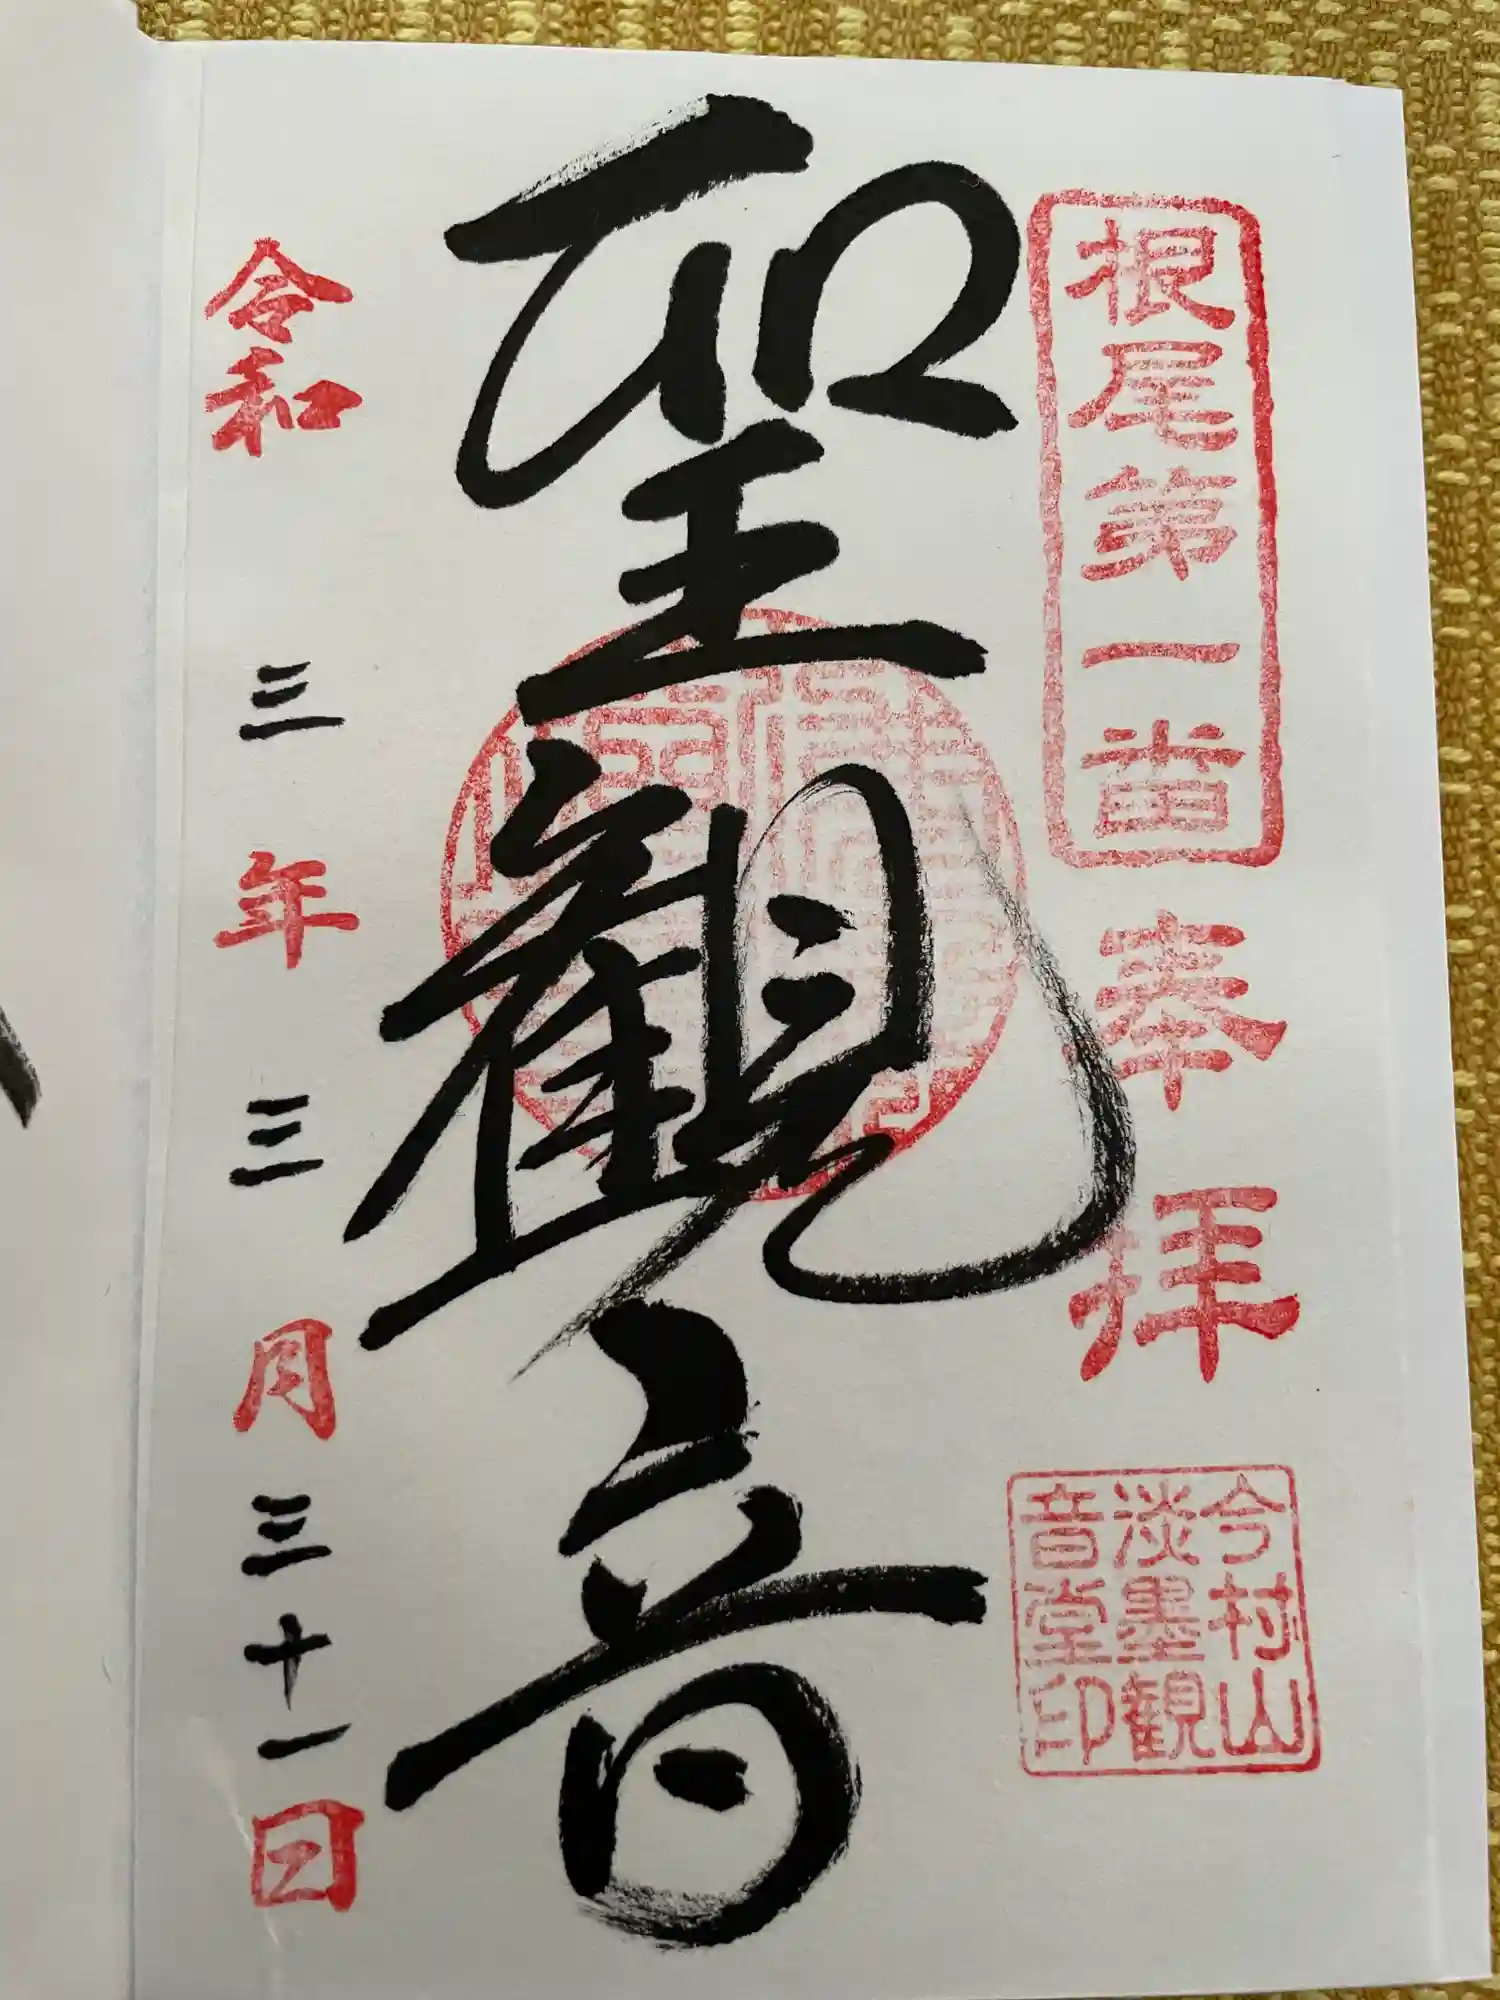 根尾第一番
奉拝
今村山
淡墨観
音堂印
聖観音
令和三年三月三十一日